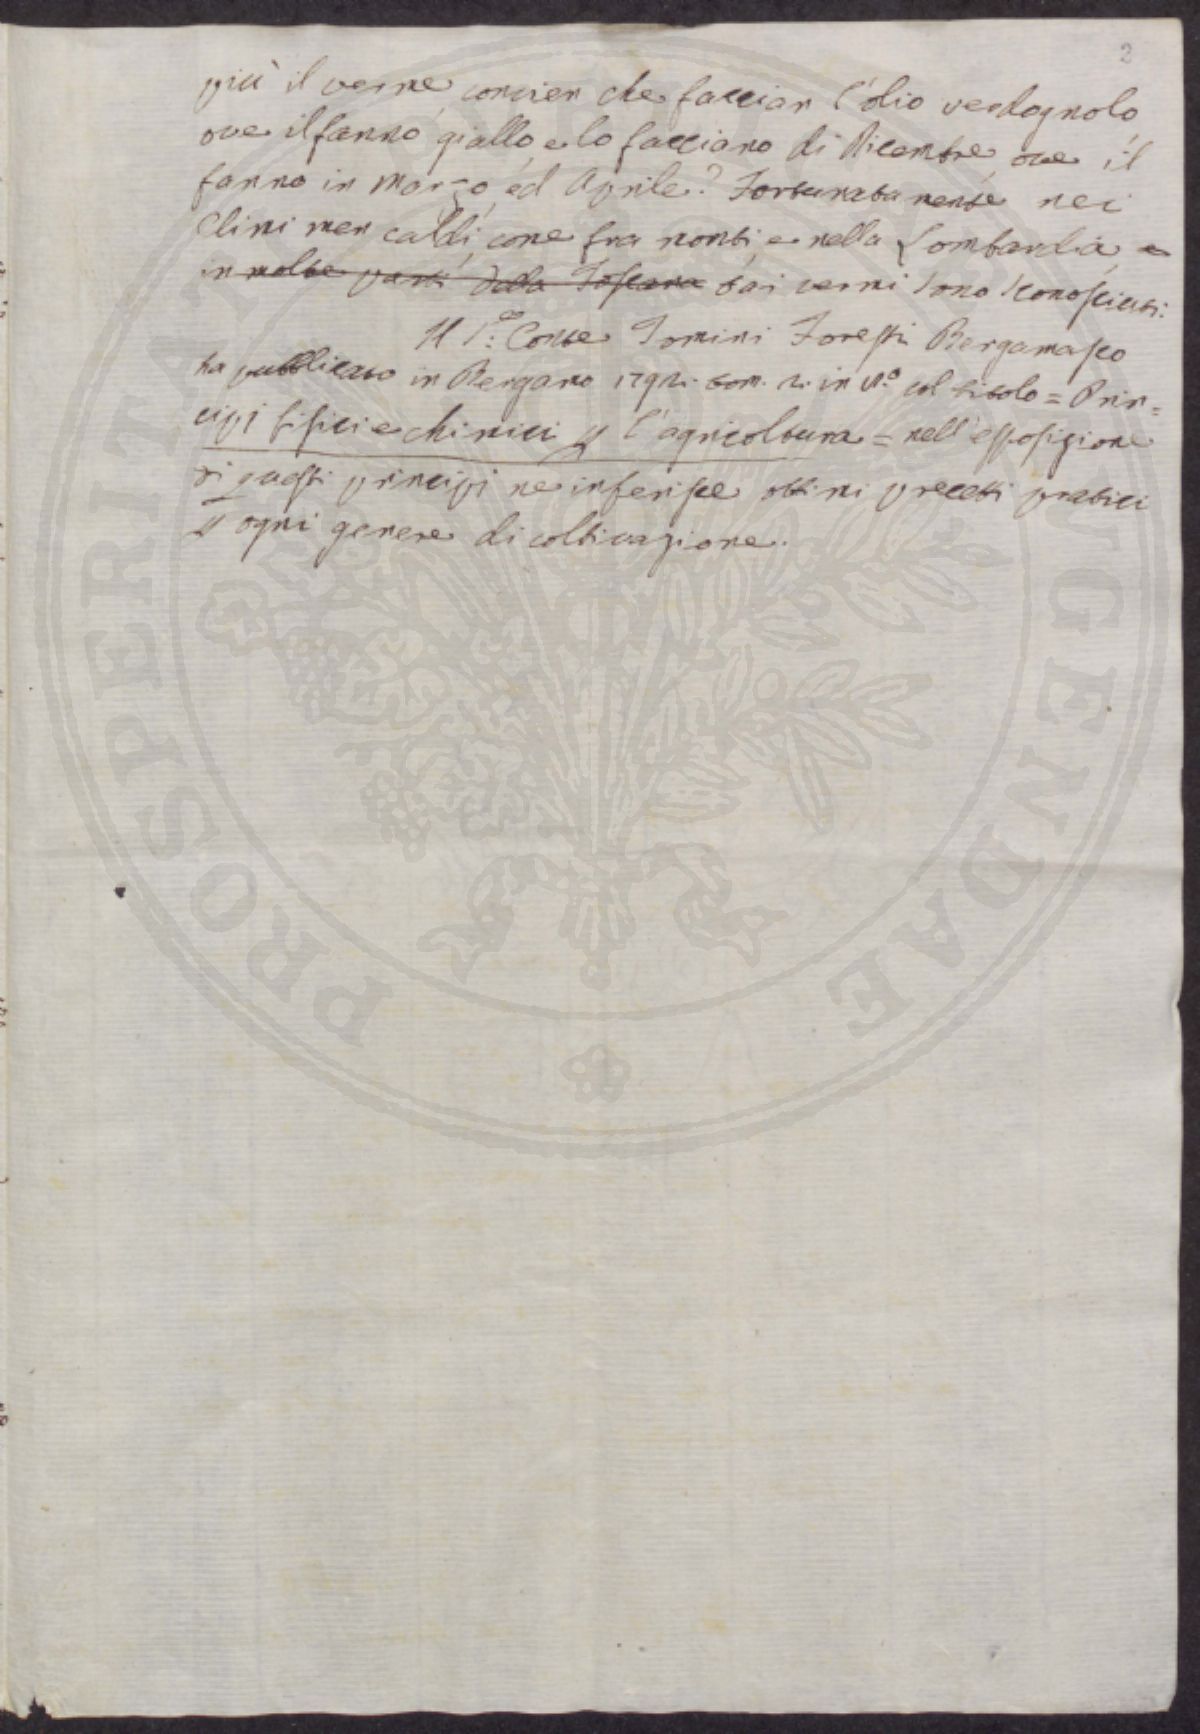 2
più il verme, convien che faccian l'olio verdognolo
ove il fanno giallo, e lo facciano di Dicembre, ove il
fanno in Marzo, ed Aprile? Fortunatamente nei
Climi men caldi, come fra monti, e nella Lombardia, e
in molte parti della Toscana tai vermi sono sconosciuti.
Il Sig.r Conte Tomini Foresti Bergamasco
ha pubblicato in Bergamo 1792. tom. 2. in 8.o col titolo = Prin=
cipj fisici e chimici p l'agricoltura = nell'esposizione
di questi principj ne inferisce ottimi precetti pratici
p ogni genere di coltivazione.
PROSPERITATI AUGENDAE